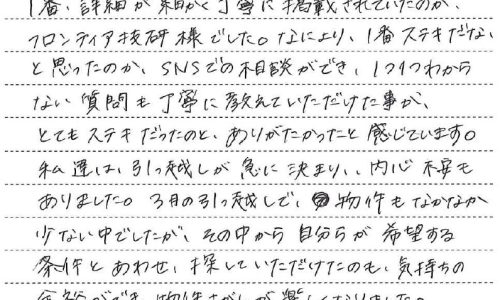 1番、詳細が細かく丁寧に掲載されていたのが、
フロンティア技研様でした。なにより、1番ステキだな
と思ったのが、SNSでの相談ができ、1つ1つわから
ない質問も丁寧に教えていただけた事が、
とてもステキだったのと、ありがたかったと感じています。
私達は、引っ越しが急に決まり、、内心不安も
ありました。3月の引っ越しで、物件もなかなか
少ない中でしたが、その中から自分らが希望する
条件とあわせ、探していただけたのも、気持ちの
余裕ができ、物件さがしが楽しくなりました。